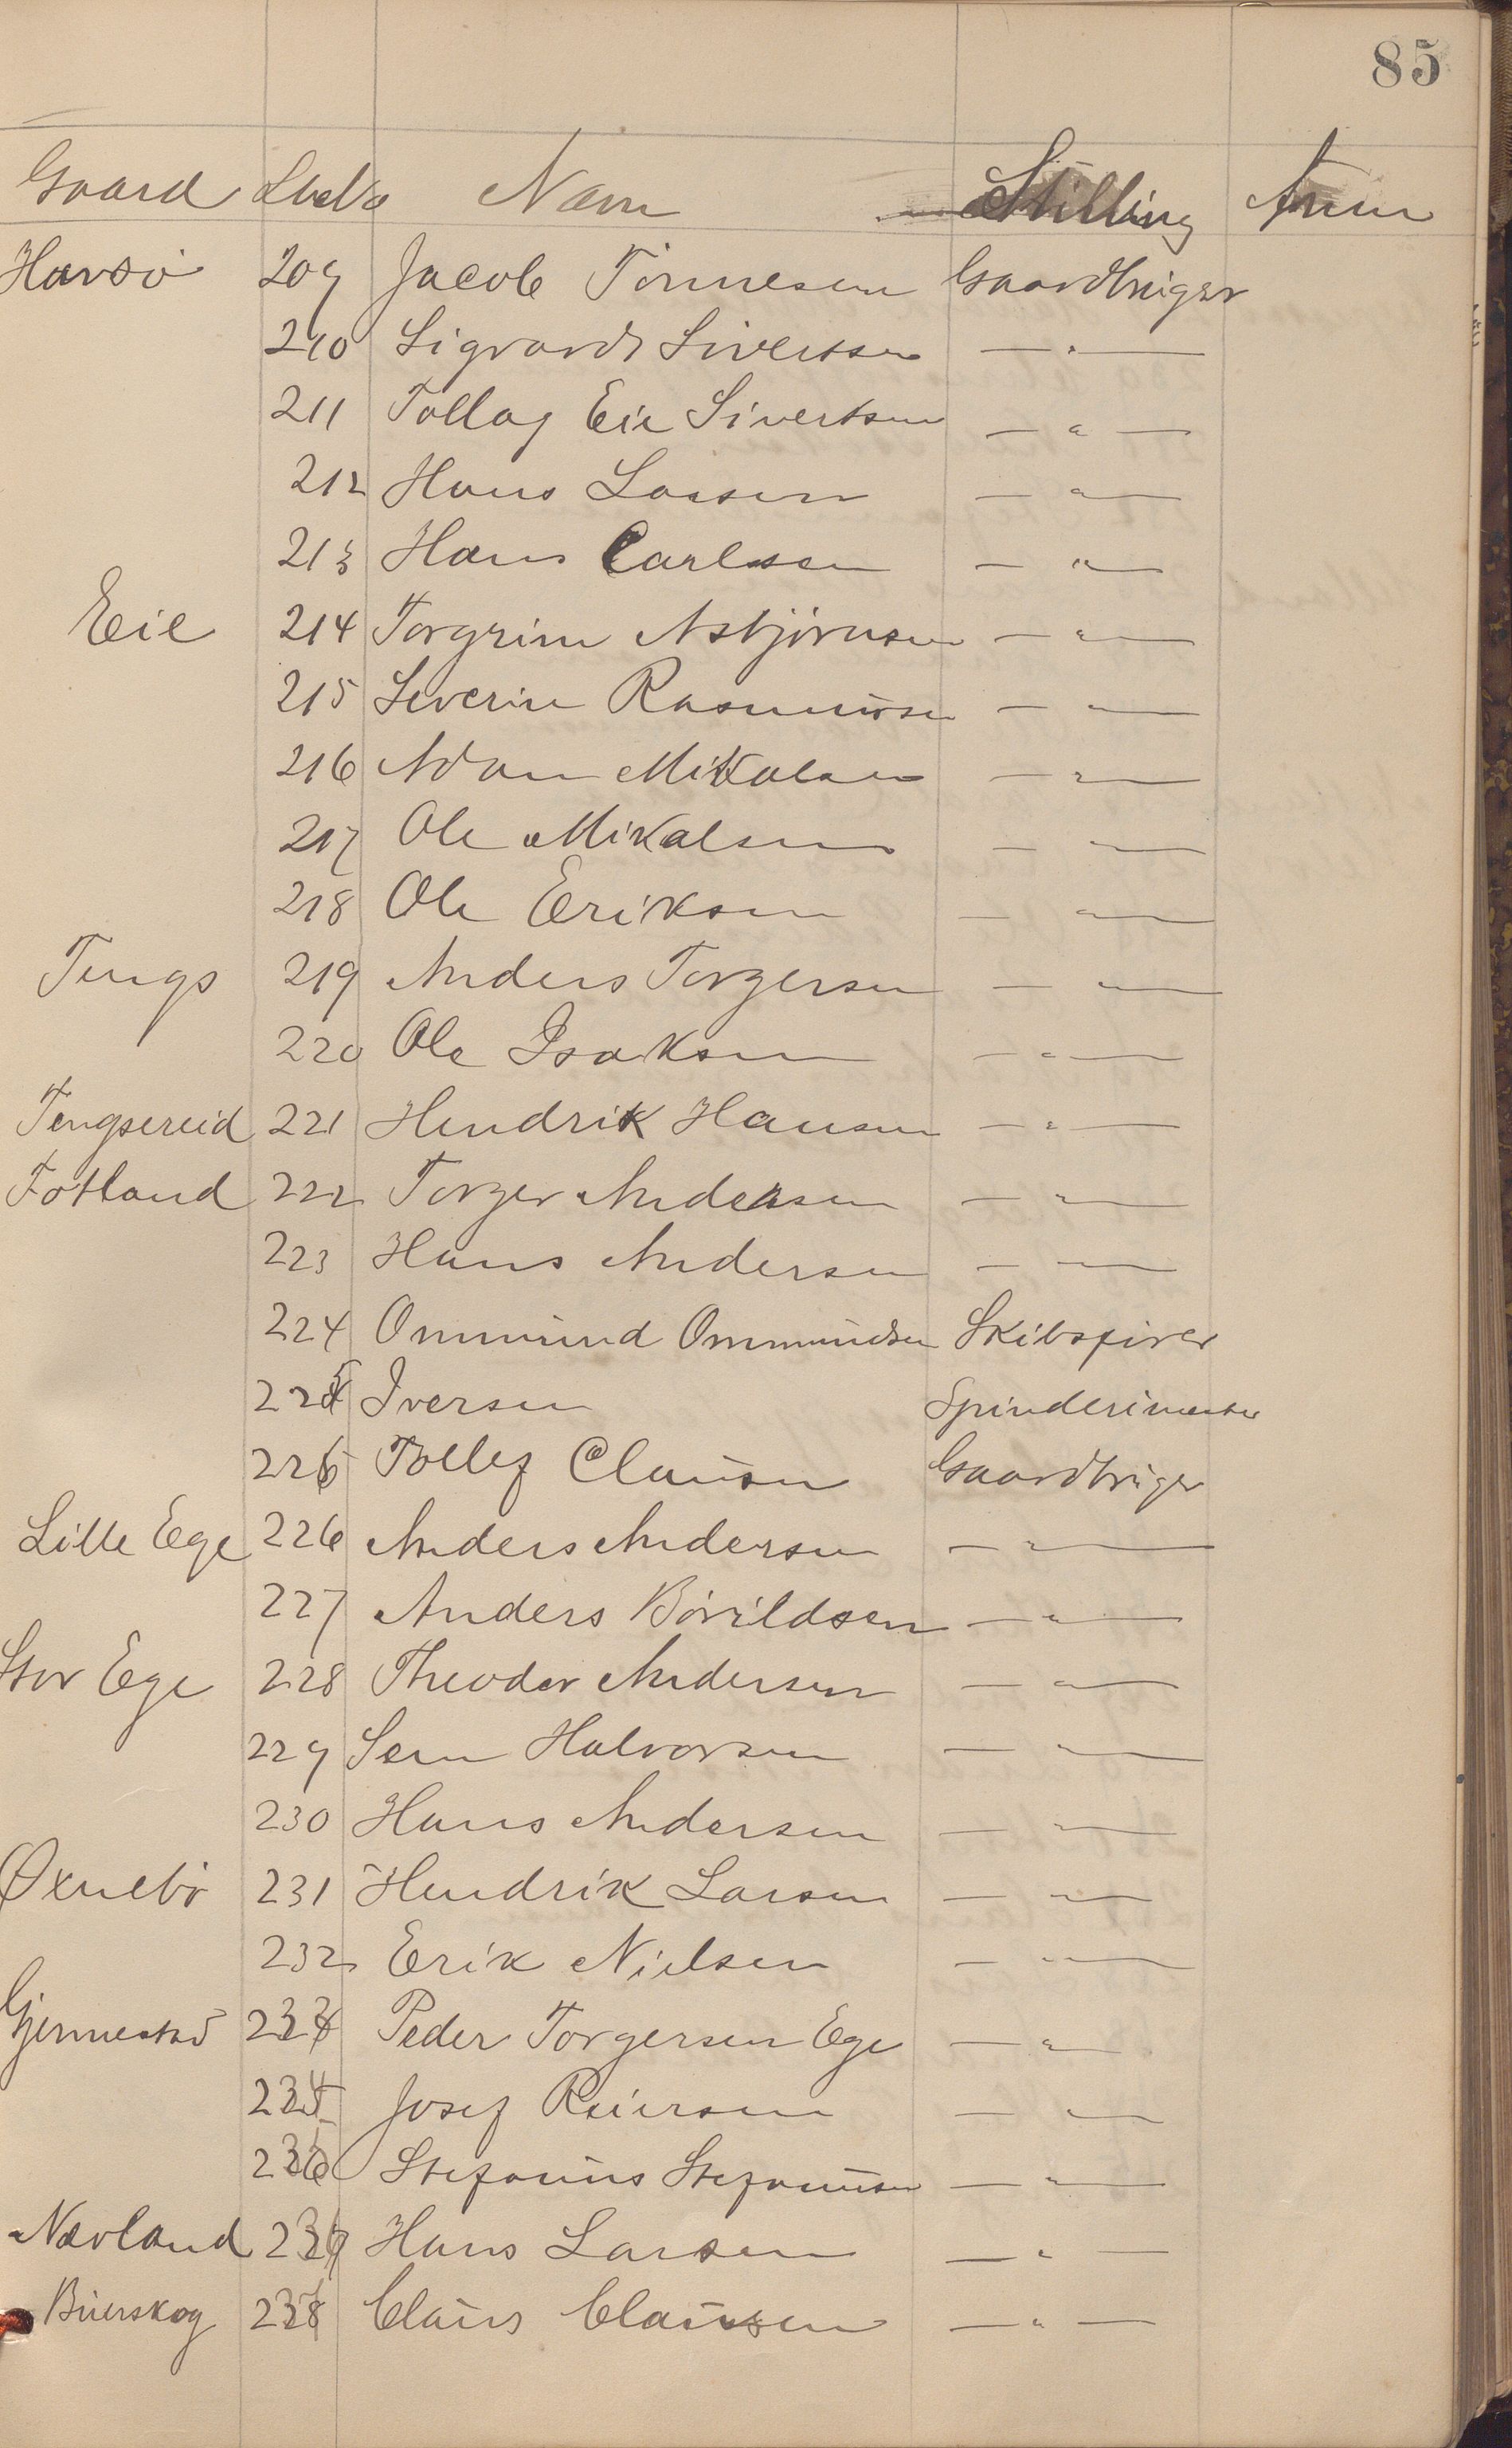 85
Gaard LbNo Navn Stilling Anm
Havsö 209 Jacob Tönnesen Gaardbruger
210 Sigvard Sivertsen — " —
211 Tollag Eie Sivertsen — " —
212 Hans Lassen — " —
213 Hans Carlssen — " —
Eie 214 Torgrim Asbjörnsen — " —
215 Severin Rasmussen — " —
216 Adam Mikalsen — " —
217 Ole Mikalsen — " —
218 Ole Eriksen — " —
Tengs 219 Anders Torgersen — " —
220 Ole Isaksen — " —
Tengsereid 221 Hendrik Hansen — " —
Fotland 222 Torger Andersen — " —
223 Hans Andersen — " —
224 Ommund Ommundsen Skibsfører
225 Iversen Spinderimester
226 Tollef Clausen Gaardbruger
Lille Ege 226 Anders Andersen — " —
227 Anders Bövildsen — " —
Stor Ege 228 Theodor Andersen — " —
229 Sem Halvorsen — " —
230 Hans Andersen — " —
Øxnebö 231 Hendrik Larsen — " —
232 Erik Nielsen — " —
Gjermestad 233 Peder Torgersen Ege — " —
234 Josef Reiersen — " —
235 Stefanus Stefanusen — " —
Nævland 236 Hans Larsen — " —
Buerskog 237 Claus Claussen — " —